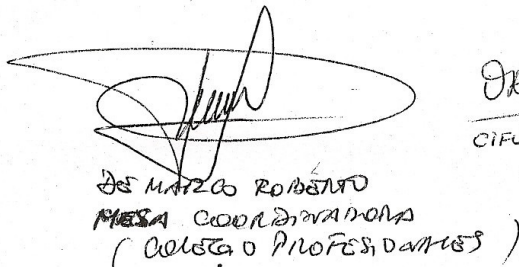 DE MARCO ROBERTO
MESA COORDINADORA
( COLEGIO PROFESIONALES )